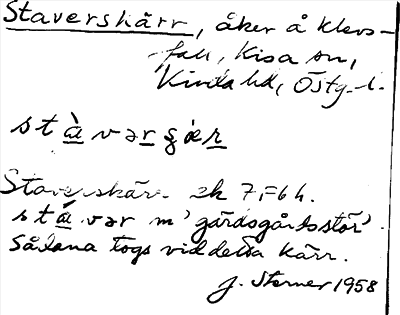 Staverskärr, åker å Klevs-
fall, Kisa sn,
Kinda hd, Östg. l.
stàvərʂæ̀r
Staverskärr ek 7, F6 h.
stávər m 'gärdsgårdsstör'.
Sådana togs vid detta kärr.
J. Sterner 1958